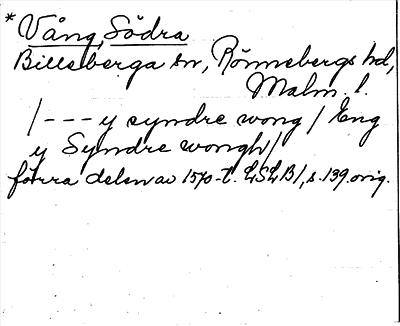 * Vång, Södra
Billeberga sn, Rönnebergs hd,
Malm. l.
/--- y syndre wong / Eng
y Syndre wongh/
förra delen av 1570-t. LSLB1, s. 139. orig.